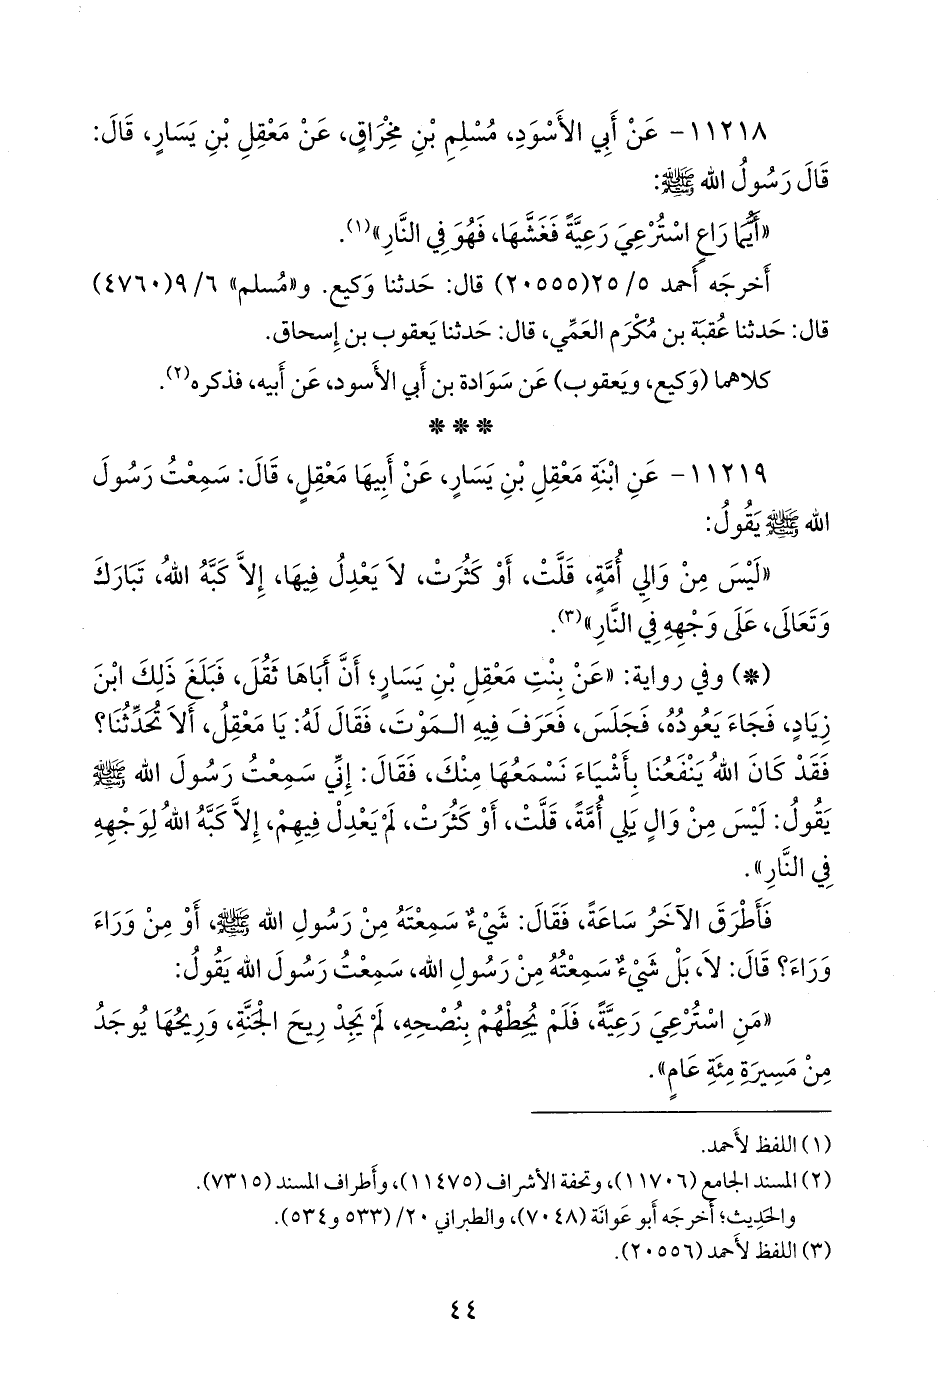 ١١٢١٨- عَنْ أَبِي الأَسْوَدِ، مُسْلِمِ بْنِ مِخْرَاقٍ، عَنْ مَعْقِلِ بْنِ يَسَارٍ، قَالَ:
قَالَ رَسُولُ الله ﷺ:
«أَيُّمَا رَاعٍ اسْتُرْعِيَ رَعِيَّةً فَغَشَّهَا، فَهُوَ فِي النَّارِ»(١).
أَخرجَه أَحمد ٥/ ٢٥(٢٠٥٥٥) قال: حَدثنا وَكيع. و«مُسلم» ٦/ ٩(٤٧٦٠)
قال: حَدثنا عُقبَة بن مُكْرَم العَمِّي، قال: حَدثنا يَعقوب بن إِسحاق.
كلاهما (وَكيع، ويَعقوب) عَن سَوَادة بن أَبي الأَسود، عَن أَبيه، فذكره(٢).
* * *
١١٢١٩- عَنِ ابْنَةِ مَعْقِلِ بْنِ يَسَارٍ، عَنْ أَبِيهَا مَعْقِلٍ، قَالَ: سَمِعْتُ رَسُولَ
الله ﷺ يَقُولُ:
«لَيْسَ مِنْ وَالِي أُمَّةٍ، قَلَّتْ، أَوْ كَثُرَتْ، لاَ يَعْدِلُ فِيهَا، إِلاَّ كَبَّهُ اللهُ، تَبَارَكَ
وَتَعَالَى، عَلَى وَجْهِهِ فِي النَّارِ»(٣).
(*) وفي رواية: «عَنْ بِنْتِ مَعْقِلِ بْنِ يَسَارٍ؛ أَنَّ أَبَاهَا ثَقُلَ، فَبَلَغَ ذَلِكَ ابْنَ
زِيَادٍ، فَجَاءَ يَعُودُهُ، فَجَلَسَ، فَعَرَفَ فِيهِ الـمَوْتَ، فَقَالَ لَهُ: يَا مَعْقِلُ، أَلاَ تُحَدِّثُنَا؟
فَقَدْ كَانَ اللهُ يَنْفَعُنَا بِأَشْيَاءَ نَسْمَعُهَا مِنْكَ، فَقَالَ: إِنِّي سَمِعْتُ رَسُولَ الله ﷺ
يَقُولُ: لَيْسَ مِنْ وَالٍ يَلِي أُمَّةً، قَلَّتْ، أَوْ كَثُرَتْ، لَمْ يَعْدِلْ فِيهِمْ، إِلاَّ كَبَّهُ اللهُ لِوَجْهِهِ
فِي النَّارِ».
فَأَطْرَقَ الآخَرُ سَاعَةً، فَقَالَ: شَيْءٌ سَمِعْتَهُ مِنْ رَسُولِ الله ﷺ، أَوْ مِنْ وَرَاءَ
وَرَاءَ؟ قَالَ: لاَ، بَلْ شَيْءٌ سَمِعْتُهُ مِنْ رَسُولِ الله، سَمِعْتُ رَسُولَ الله يَقُولُ:
«مَنِ اسْتُرْعِيَ رَعِيَّةً، فَلَمْ يُحِطْهُمْ بِنُصْحِهِ، لَمْ يَجِدْ رِيحَ الْجَنَّةِ، وَرِيحُهَا يُوجَدُ
مِنْ مَسِيرَةِ مِئَةِ عَامٍ».
(١) اللفظ لأَحمد.
(٢) المسند الجامع (١١٧٠٦)، وتحفة الأشراف (١١٤٧٥)، وأطراف المسند (٧٣١٥).
والحَدِيث؛ أخرجَه أبو عَوانَة (٧٠٤٨)، والطبراني ٢٠/ (٥٣٣ و٥٣٤).
(٣) اللفظ لأَحمد (٢٠٥٥٦).
٤٤